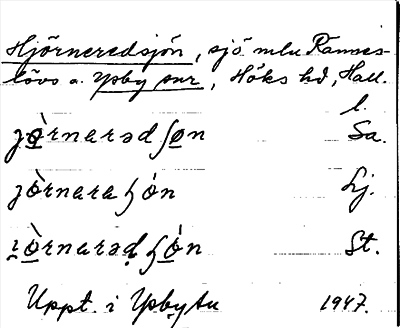 Hjörneredsjön, sjö mlu Ramnes-
lövs o. Ysby snr, Höks hd, Hall.
l.
jö̀rnarəd ʃøn Sa.
jö̀rnara ɧón Lj.
ı̣ö̀rnarəḍ ɧón St.
Uppt. i Ysby sn 1947.